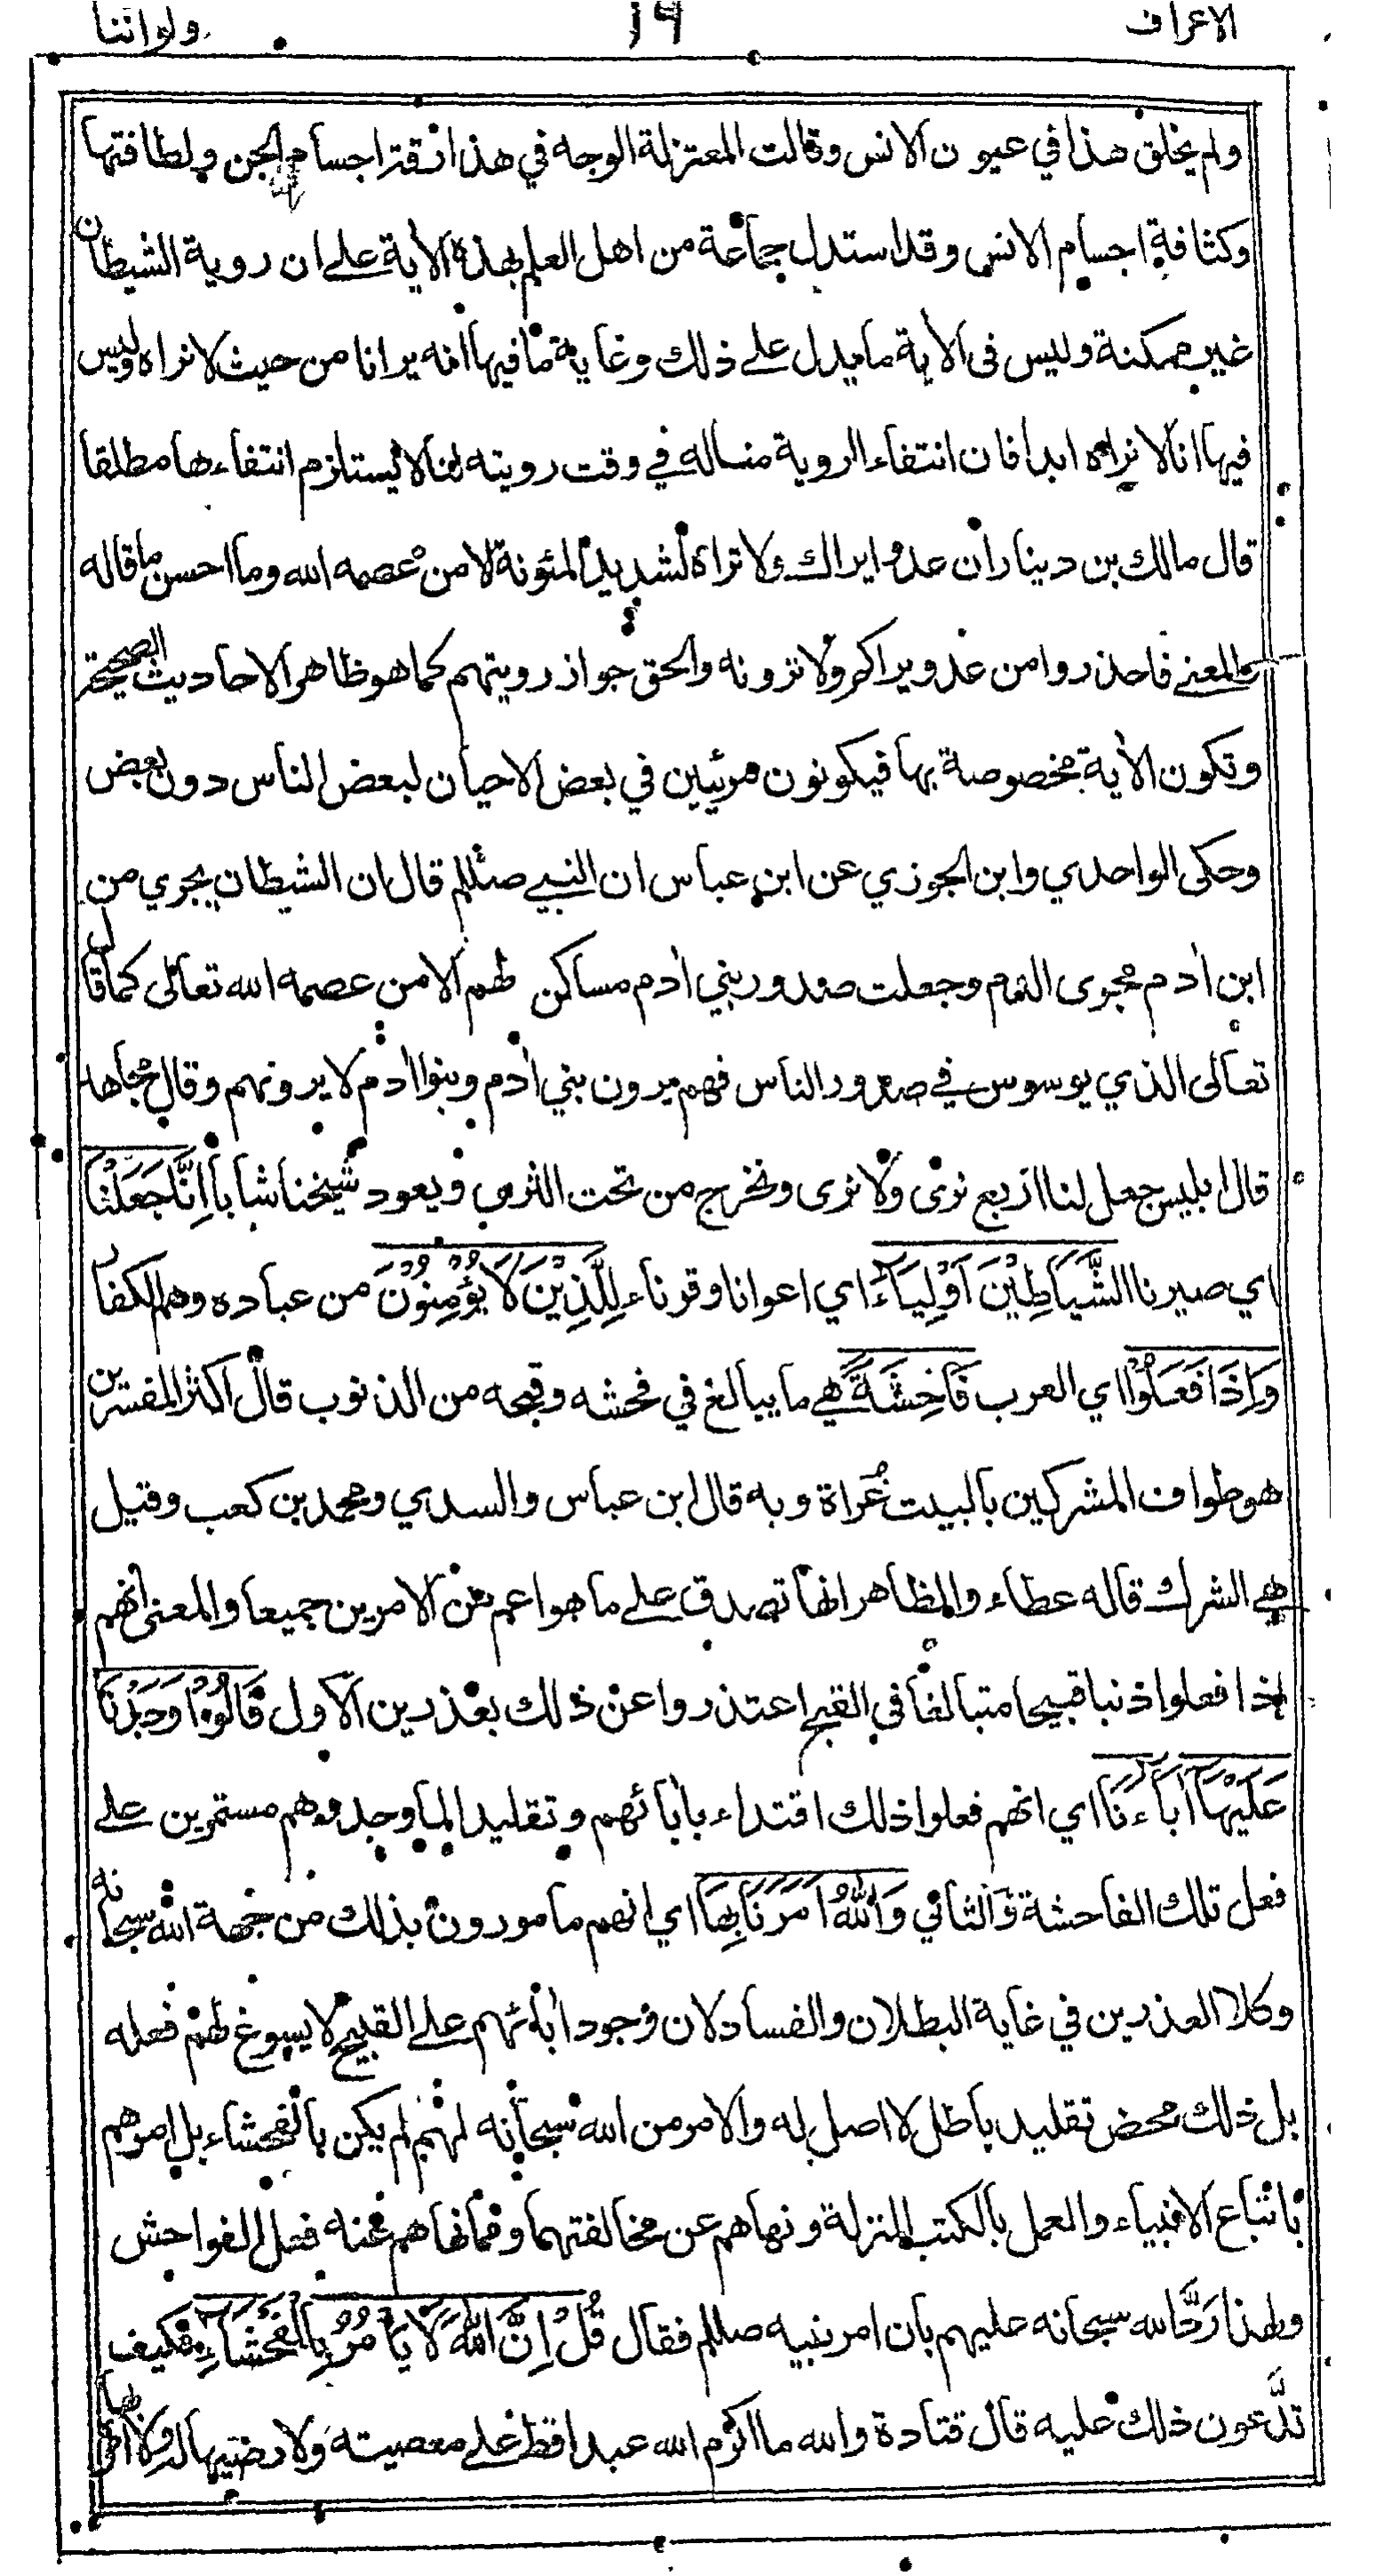 الاعراف ١٩ ولواننا
ولم يخلق هذا في عيون الانس وقالت المعتزلة الوجه في هذا رقة اجسام الجن ولطافتها
وكثافة اجسام الانس وقد استدل جماعة من اهل العلم بهذه الأية على ان روية الشيطان
غير ممكنة وليس فى الأية ما يدل على ذلك وغاية ما فيها انه يرانا من حيث لا نراه وليس
فيها انا لا نراه ابدا فان انتفاء الروية منا له في وقت رويته لنا لا يستلزم انتفاءها مطلقا
قال مالك بن دينار ان عدوا يراك ولا تراه لشديد المئونة الا من عصمه الله وما احسن ما قاله
فالمعنے فاحذروا من عدو يراكم ولا ترونه والحق جواز رويتهم كما هو ظاهر الاحاديث الصحيحة
وتكون الأية مخصوصة بها فيكونون مرئيين في بعض الاحيان لبعض الناس دون بعض
وحكى الواحدي وابن الجوزي عن ابن عباس ان النبي صلىلم قال ان الشيطان يجري من
ابن أدم مجرى الدم وجعلت صدور بني أدم مساكن لهم الا من عصمه الله تعالى كما قال
تعالى الذي يوسوس في صدور الناس فهم يرون بني أدم وبنوا أدم لا يرونهم وقال مجاهد
قال ابليس جعل لنا اربع نرى ولا نرى ونخرج من تحت الثرى ويعود شيخنا شابا اِنَّا جَعَلْنَا
اي صيرنا الشَّيَاطِيْنَ اَوْلِيَآءَ اي اعوانا وقرناء لِلَّذِيْنَ لَا يُؤْمِنُوْنَ من عباده وهم الكفار
وَاِذَا فَعَلُوْا اي العرب فَاحِشَةً هي ما يبالغ في فحشه وقبحه من الذنوب قال اكثر المفسرين
هو طواف المشركين بالبيت عُراة وبه قال ابن عباس والسدي ومحمد بن كعب وقيل
هي الشرك قاله عطاء والظاهر انها تصدق على ما هو اعم من الامرين جميعا والمعنى انهم
اذا فعلوا ذنبا قبيحا متبالغا في القبح اعتذروا عن ذلك بعذرين الاول قَالُوْا وَجَدْنَا
عَلَيْهَآ اٰبَآءَنَا اي انهم فعلوا ذلك اقتداء بأبائهم وتقليدا لما وجدوهم مستمرين على
فعل تلك الفاحشة وَالثاني وَاللّٰهُ اَمَرَنَا بِهَا اي انهم مامورون بذلك من جهة الله سبحانه
وكلا العذرين في غاية البطلان والفساد لان وجود أبائهم على القبيح لا يسوغ لهم فعله
بل ذلك محض تقليد باطل لا اصل له والامر من الله سبحانه لهم لم يكن بالفحشاء بل امرهم
باتباع الانبياء والعمل بالكتب المنزلة ونهاهم عن مخالفتهما ومما نهاهم عنه فعل الفواحش
ولهذا رَدَّ الله سبحانه عليهم بان امر نبيه صللم فقال قُلْ اِنَّ اللّٰهَ لَا يَاْمُرُ بِالْفَحْشَآءِ فكيف
تدَّعون ذلك عليه قال قتادة والله ما اكرم الله عبدا قط على معصيته ولا رضيها له ولا امر بها